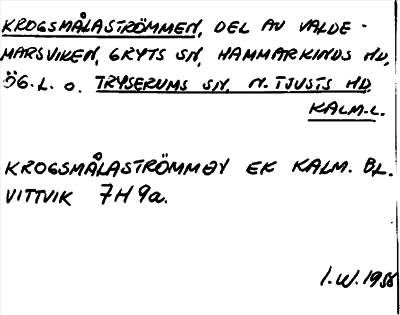 KROGSMÅLASTRÖMMEN, DEL AV VALDE-
MARSVIKEN, GRYTS SN, HAMMARKINDS HD,
ÖG.L. O. TRYSERUMS SN, N. TJUSTS HD,
KALM.L.
KROGSMÅLASTRÖMMØN EK KALM. BL.
VITTVIK 7H9a.
I.W. 1958